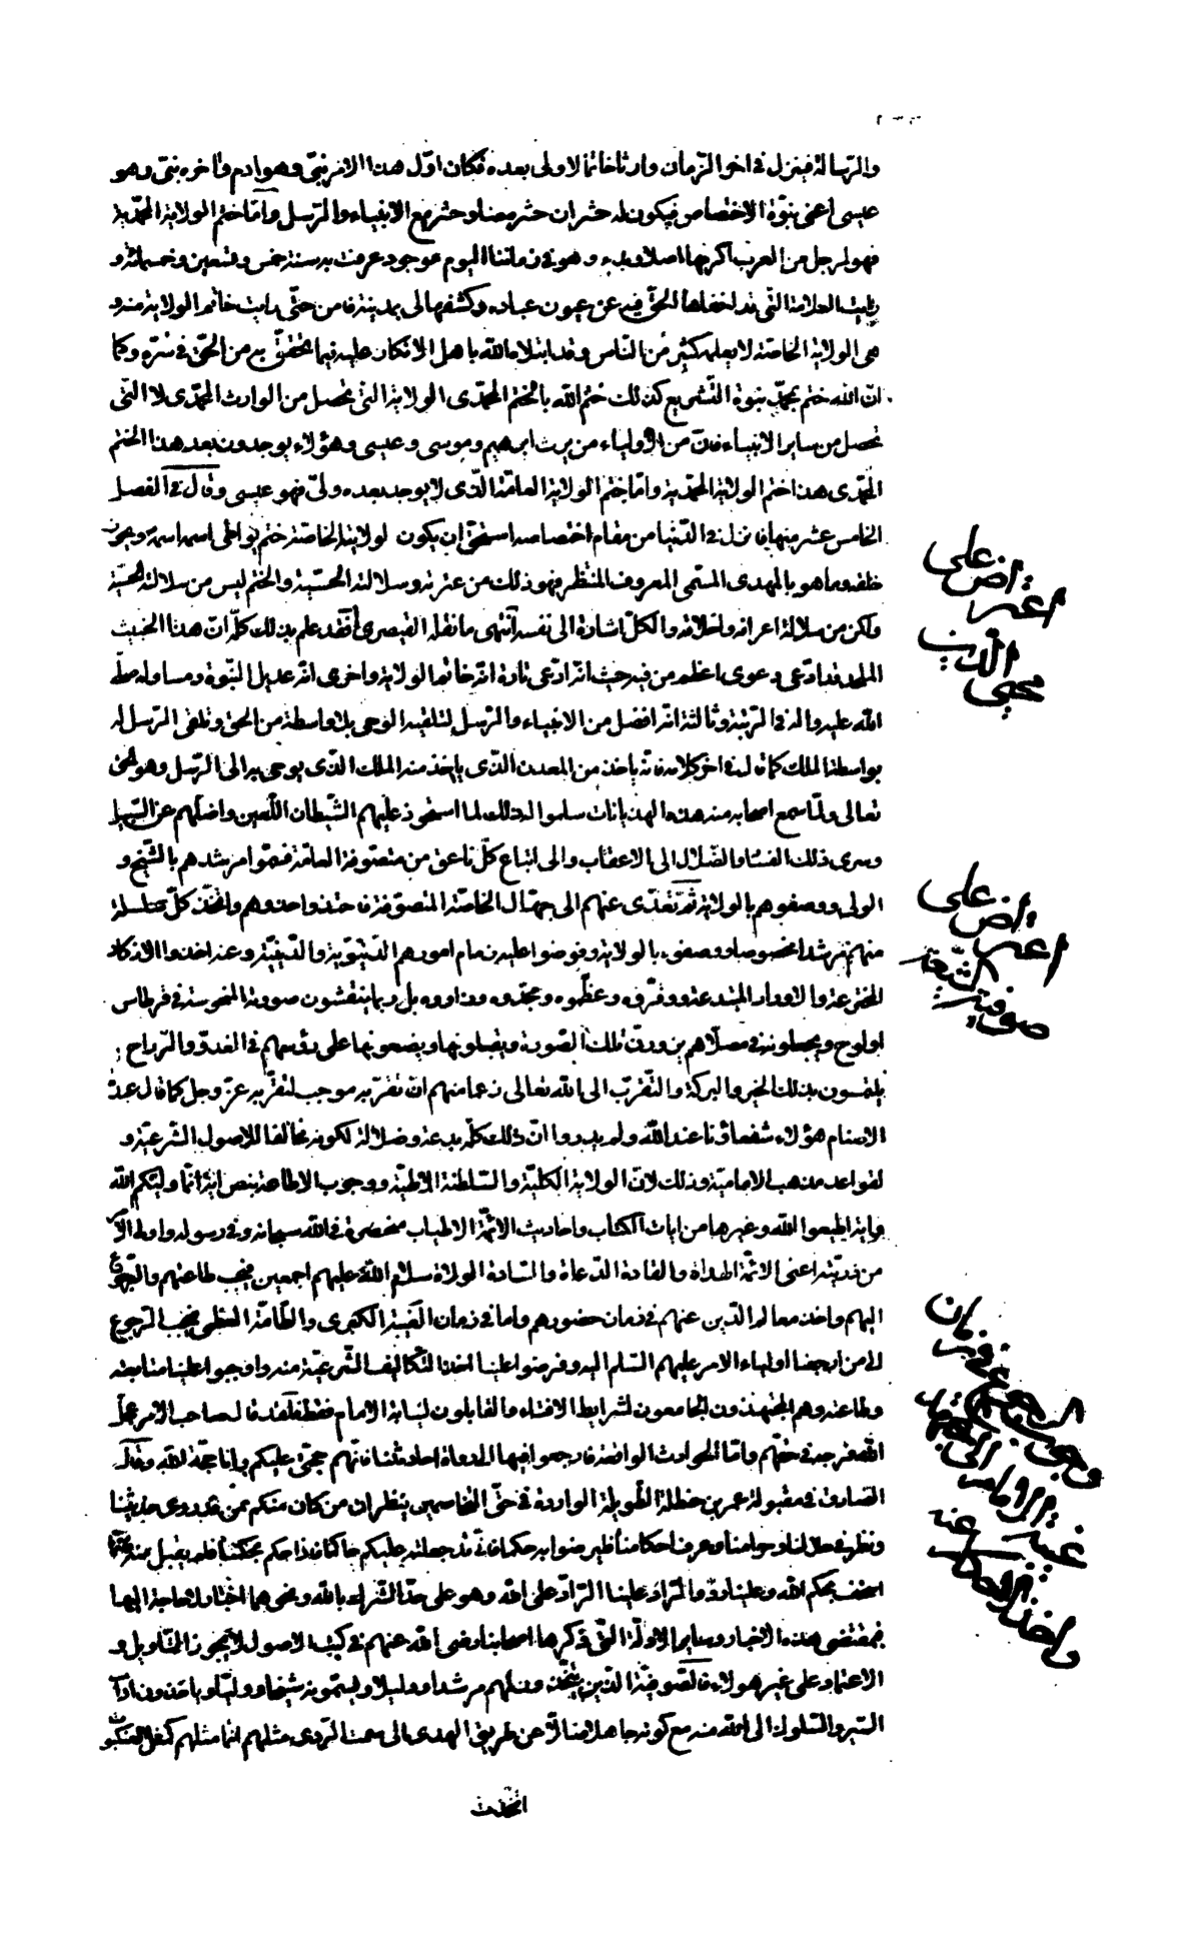 والرّسالة فينزل فى اخر الزّمان وارثا خاتما لا ولى بعده فكان اوّل هذا الامر نبىّ وهو ادم واخره نبىّ وهو
عيسى اعنى نبوّة الاختصاص فيكون له حشران حشر معنا وحشر مع الانبياء والرّسل وامّا ختم الولاية المحمّدية
فهو لرجل من العرب اكرمها اصلا ويدا وهو فى زماننا اليوم موجود عرفت به سنة خمس وتسعين وخمسمائة و
رايت العلامة الّتى قد اخفاها الحقّ فيه عن عيون عباده وكشفها لى بمدينة فاس حتّى رايت خاتم الولاية منه و
هى الولاية الخاصّة لا يعلمه كثير من النّاس وقد ابتلاه الله باهل الانكار عليه فيما يتحقّق به من الحقّ فى سرّه وكما
انّ الله ختم بمحمّد نبوة التّشريع كذلك ختم الله بالختم المحمّدى الولاية التى تحصل من الوارث المحمّدى لا الّتى
تحصل من ساير الانبياء فانّ من الاولياء من يرث ابرهيم وموسى وعيسى وهؤلاء يوجدون بعد هذا الختم
المحمّدى هذا ختم الولاية المحمّدية وامّا ختم الولاية العامّة الّذى لا يوجد بعده ولىّ فهو عيسى وقال فى الفصل
الخامس عشر منها فانزل فى الدّنيا من مقام اختصاصه استحقّ ان يكون لولايته الخاصّة ختم يواطى اسمه اسمه ويحوز
خلقه وما هو بالمهدى المسمّى المعروف المنتظر فهو ذلك من عترته وسلالته الحسّية والختم ليس من سلالته الحسّية
ولكن من سلالة اعراقه واخلاقه والكلّ اشارة الى نفسه انتهى ما نقله القيصرى فقد علم بذلك كلّه انّ هذا الخبيث
الملحد قد ادّعى دعوى اعظم من فيه حيث انّه ادّعى تارة انّه خاتم الولاية واخرى انّه عديل النّبوة ومساو له صلّى
الله عليه واله فى الرّتبة وثالثة انّه افضل من الانبياء والرّسل لتلقيه الوحى بلا واسطة من الحق وتلقى الرّسل له
بواسطة الملك كما قال فى اخر كلامه فانّه ياخذ من المعدن الّذى ياخذ منه الملك الّذى يوحى به الى الرّسل وهو الحق
تعالى ولمّا سمع اصحابه منه هذه الهذيانات سلموا له ذلك لما استحوذ عليهم الشّيطان اللّعين واضلّهم عن السّبيل
وسرى ذلك الفساد والضّلال الى الاعقاب والى اتباع كلّ ناعق من متصوّفة العامّة فسمّوا مرشدهم بالشّيخ و
الولى ووصفوهم بالولاية ثمّ تعدّى عنهم الى جهّال الخاصّة المتصوّفة فاحتذوا حذوهم واتّخذ كلّ سلسلة
منهم مرشدا مخصوصا ووصفوه بالولاية وفوضوا عليه زمام امورهم الدّنيويّة والدّينيّة وعنه اخذوا الاذكار
المخترعة والاوراد المبتدعة ووقّروه وعظّموه ومجّدوه وزاروه بل ربما ينقشون صورته المنحوسة فى قرطاس
او لوح ويجعلونه فى مصلّاهم بل ورق تلك الصّورة ويقبلونها ويضعونها على رؤسهم فى الغدوّ والرّواح
يلتمسون بذلك الخير والبركة والتّقرّب الى الله تعالى زعما منهم انّ تقرّبه موجب لتقرّبه عزّ وجل كما قال عبدة
الاصنام هؤلاء شفعاؤنا عند الله ولم يدروا انّ ذلك كلّه بدعة وضلالة لكونه مخالفا للاصول الشّرعيّة و
لقواعد مذهب الاماميّة وذلك لانّ الولاية الكليّة والسّلطنة الالهيّة ووجوب الاطاعة بنص اية انّما وليّكم الله
واية اطيعوا الله وغيرها من ايات الكتاب واحاديث الائمّة الاطياب منحصرة فى الله سبحانه وفى رسوله واولى الامر
من ذريّته اعنى الائمّة الهداة والقادة الدّعاة والسّادة الولاة سلام الله عليهم اجمعين فيجب طاعتهم والرّجوع
اليهم واخذ معالم الدّين عنهم فى زمان حضورهم وامّا فى زمان الغيبة الكبرى والطّامّة العظمى فيجب الرّجوع
الى من ارجعنا اولياء الامر عليهم السّلم اليه وفرضوا علينا اخذ التّكاليف الشّرعيّة منه واوجبوا علينا متابعته
وطاعته وهم المجتهدون الجامعون لشرايط الافتاء والقابلون لنيابة الامام فقط فلقد قال صاحب الامر عجّل
الله فرجه فى حقّهم وامّا الحوادث الواقعة فارجعوا فيها الى رواة احاديثنا فانّهم حجّتى عليكم وانا حجّة الله وقال
الصّادق فى مقبولة عمر بن حنظلة الطّويلة الواردة فى حقّ المتخاصمين ينظران من كان منكم ممّن قد روى حديثنا
ونظر فى حلالنا وحرامنا وعرف احكامنا فليرضوا به حكما فانّى قد جعلته عليكم حاكما فاذا حكم بحكمنا فلم يقبل منه فانّما
استخف بحكم الله وعلينا ردّ والرّادّ علينا الرّادّ على الله وهو على حدّ الشّرك بالله ونحوهما اخبار لا حاجة اليها
فبمقتضى هذه الاخبار وساير الادلّة الّتى ذكرها اصحابنا رضى الله عنهم فى كتب الاصول لا يجوز التّعويل و
الاعتماد على غير هؤلاء فالصّوفيّة الّذين يتّخذون لهم مرشدا ودليلا ويسمّونه شيخا ووليّا وياخذون اداب
السّير والسّلوك الى الله منه مع كونه جاهلا ضالّا عن طريق الهدى الى سمت الرّدى مثلهم انّما مثلهم كمثل العنكبوت
اتّخذت
اعتراض على
محيى الدّين
اعتراض على
صوفية الشّيعة
وجوب الرجوع فى زمان
غيبة الامام الى الفقهاء
واخذ الاحكام عنه